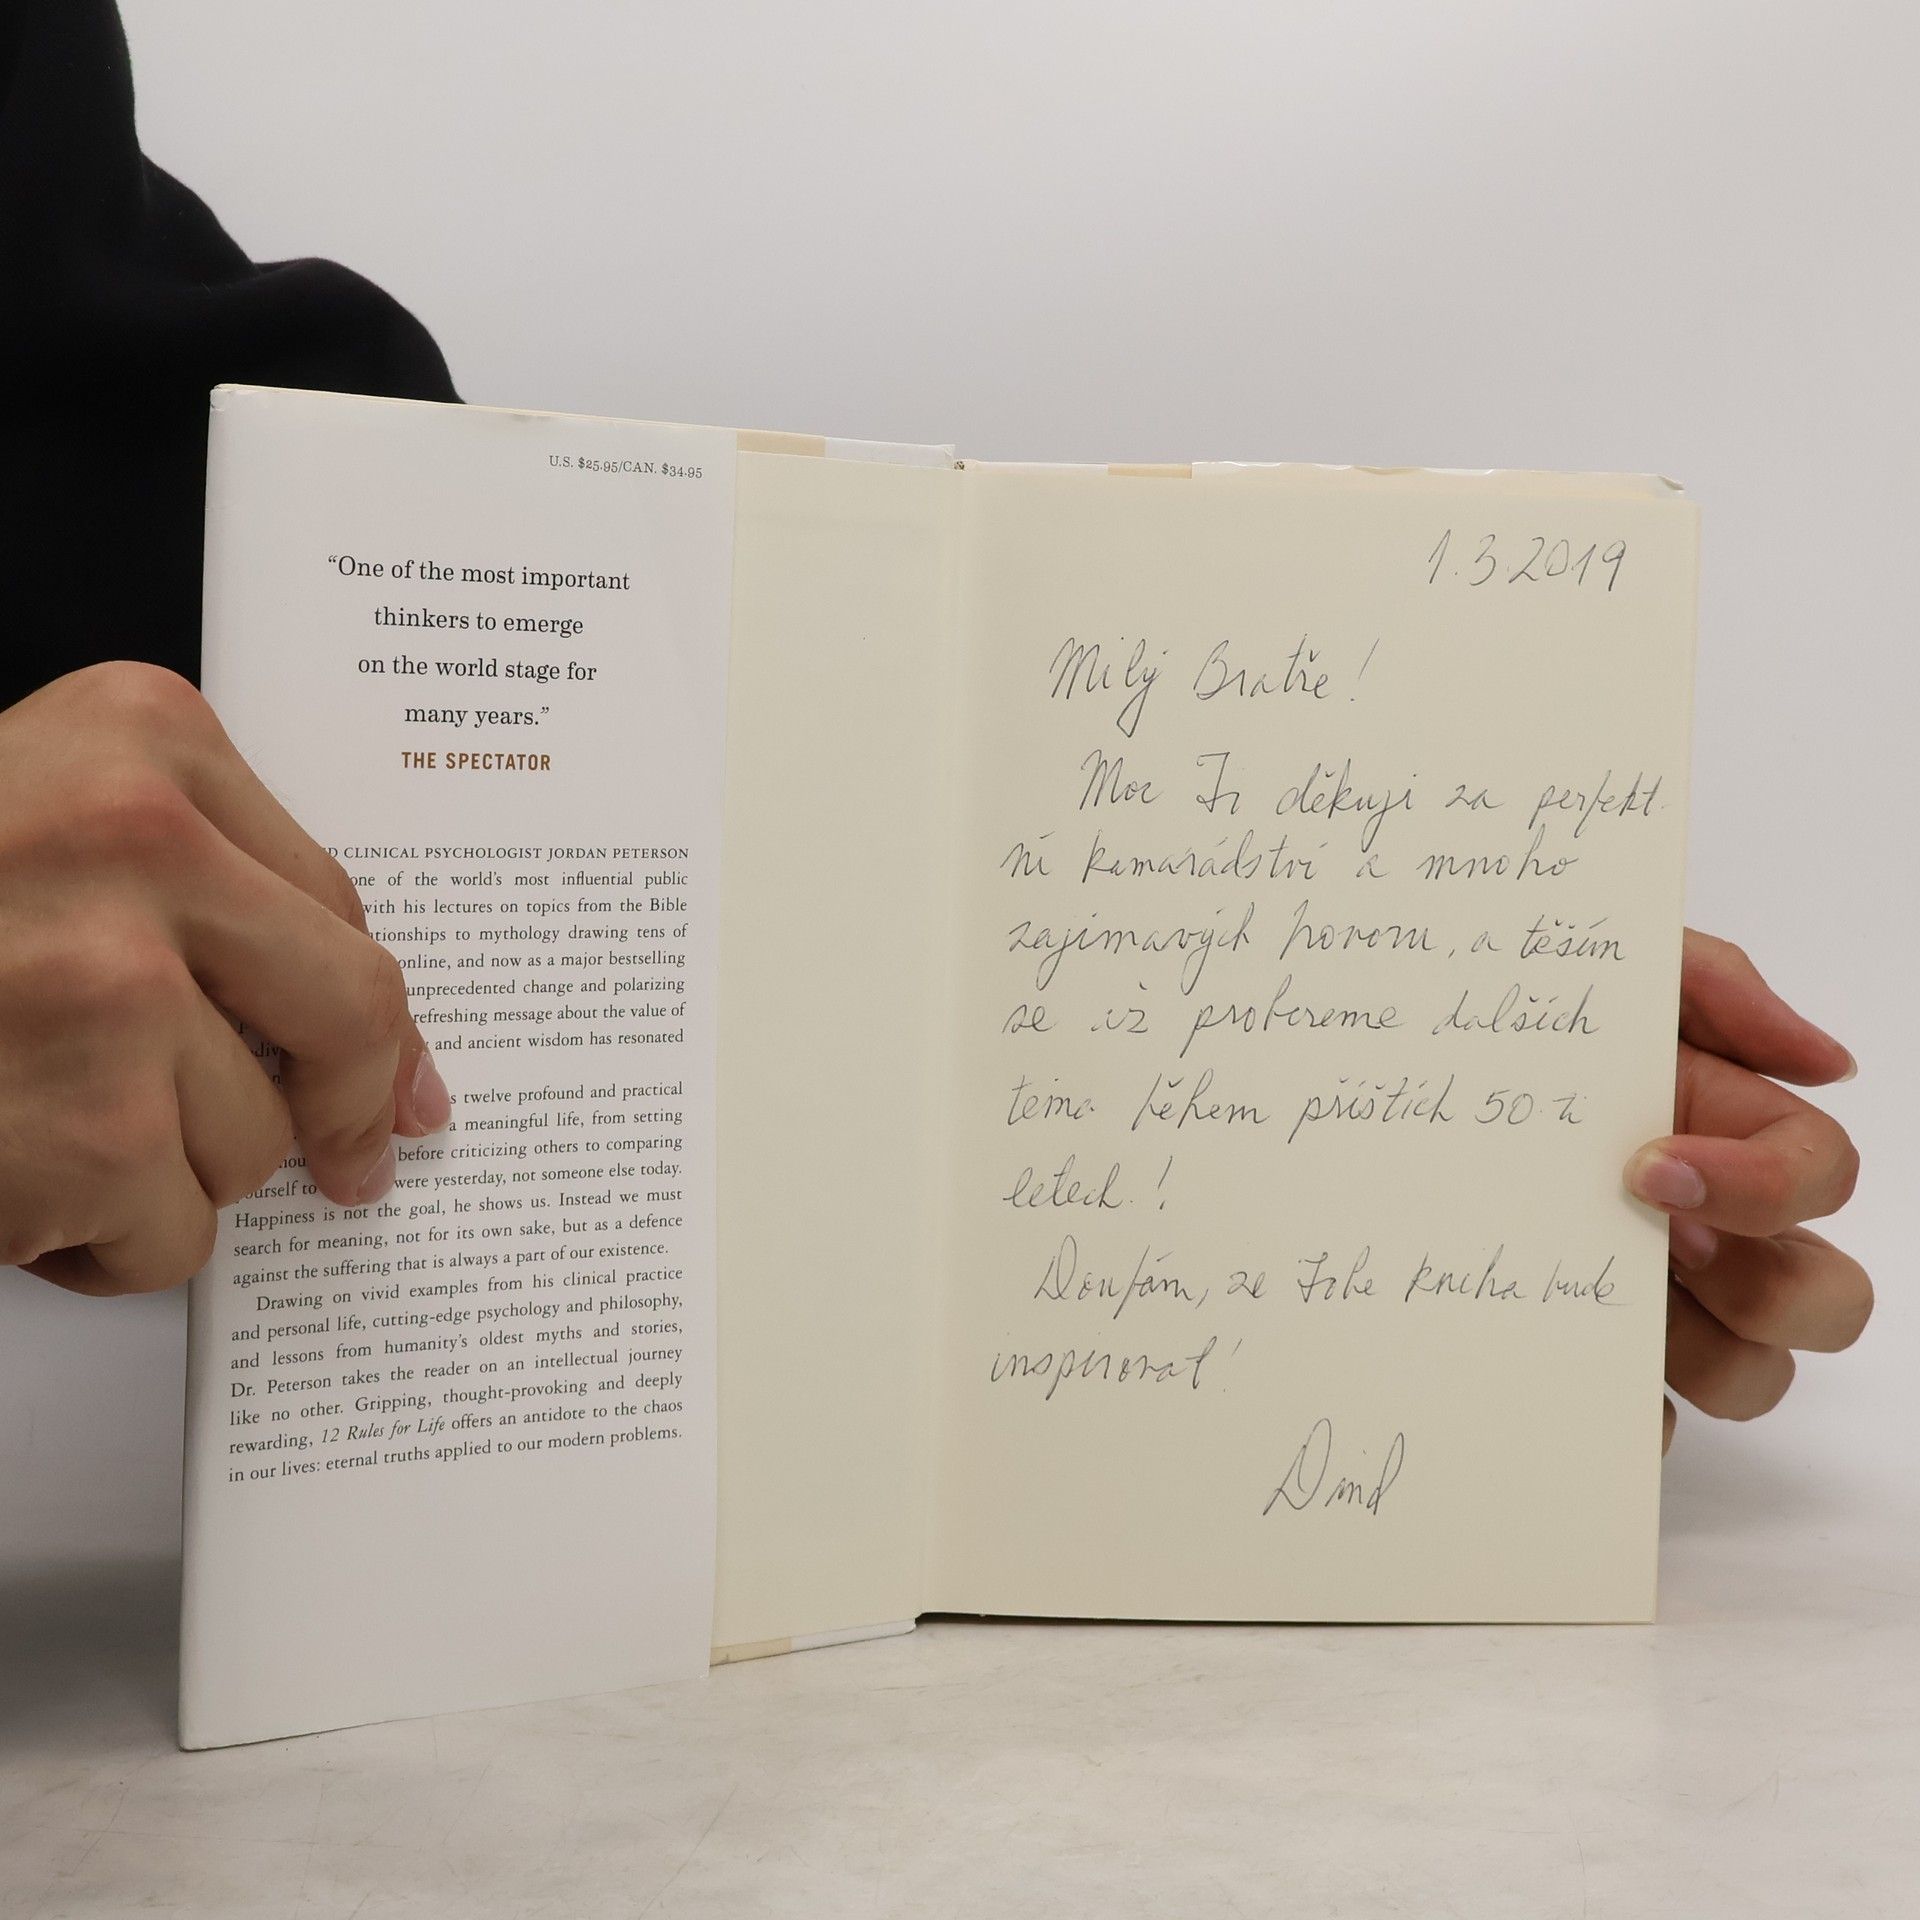 U.S. $25.95/CAN. $34.95
“One of the most important
thinkers to emerge
on the world stage for
many years.”
THE SPECTATOR
CLINICAL PSYCHOLOGIST JORDAN PETERSON
one of the world's most influential public
with his lectures on topics from the Bible
to mythology drawing tens of
online, and now as a major bestselling
unprecedented change and polarizing
refreshing message about the value of
and ancient wisdom has resonated
twelve profound and practical
a meaningful life, from setting
before criticizing others to comparing
were yesterday, not someone else today.
Happiness is not the goal, he shows us. Instead we must
search for meaning, not for its own sake, but as a defence
against the suffering that is always a part of our existence.
Drawing on vivid examples from his clinical practice
and personal life, cutting-edge psychology and philosophy,
and lessons from humanity's oldest myths and stories,
Dr. Peterson takes the reader on an intellectual journey
like no other. Gripping, thought-provoking and deeply
rewarding, 12 Rules for Life offers an antidote to the chaos
in our lives: eternal truths applied to our modern problems.
1.3.2019
Milý Bratře!
Moc Ti děkuji za perfekt-
ní kamarádství a mnoho
zajímavých hovoru, a těším
se až probereme dalších
téma během příštích 50-ti
letech!
Doufám, ze Tobe kniha bude
inspirovat!
David